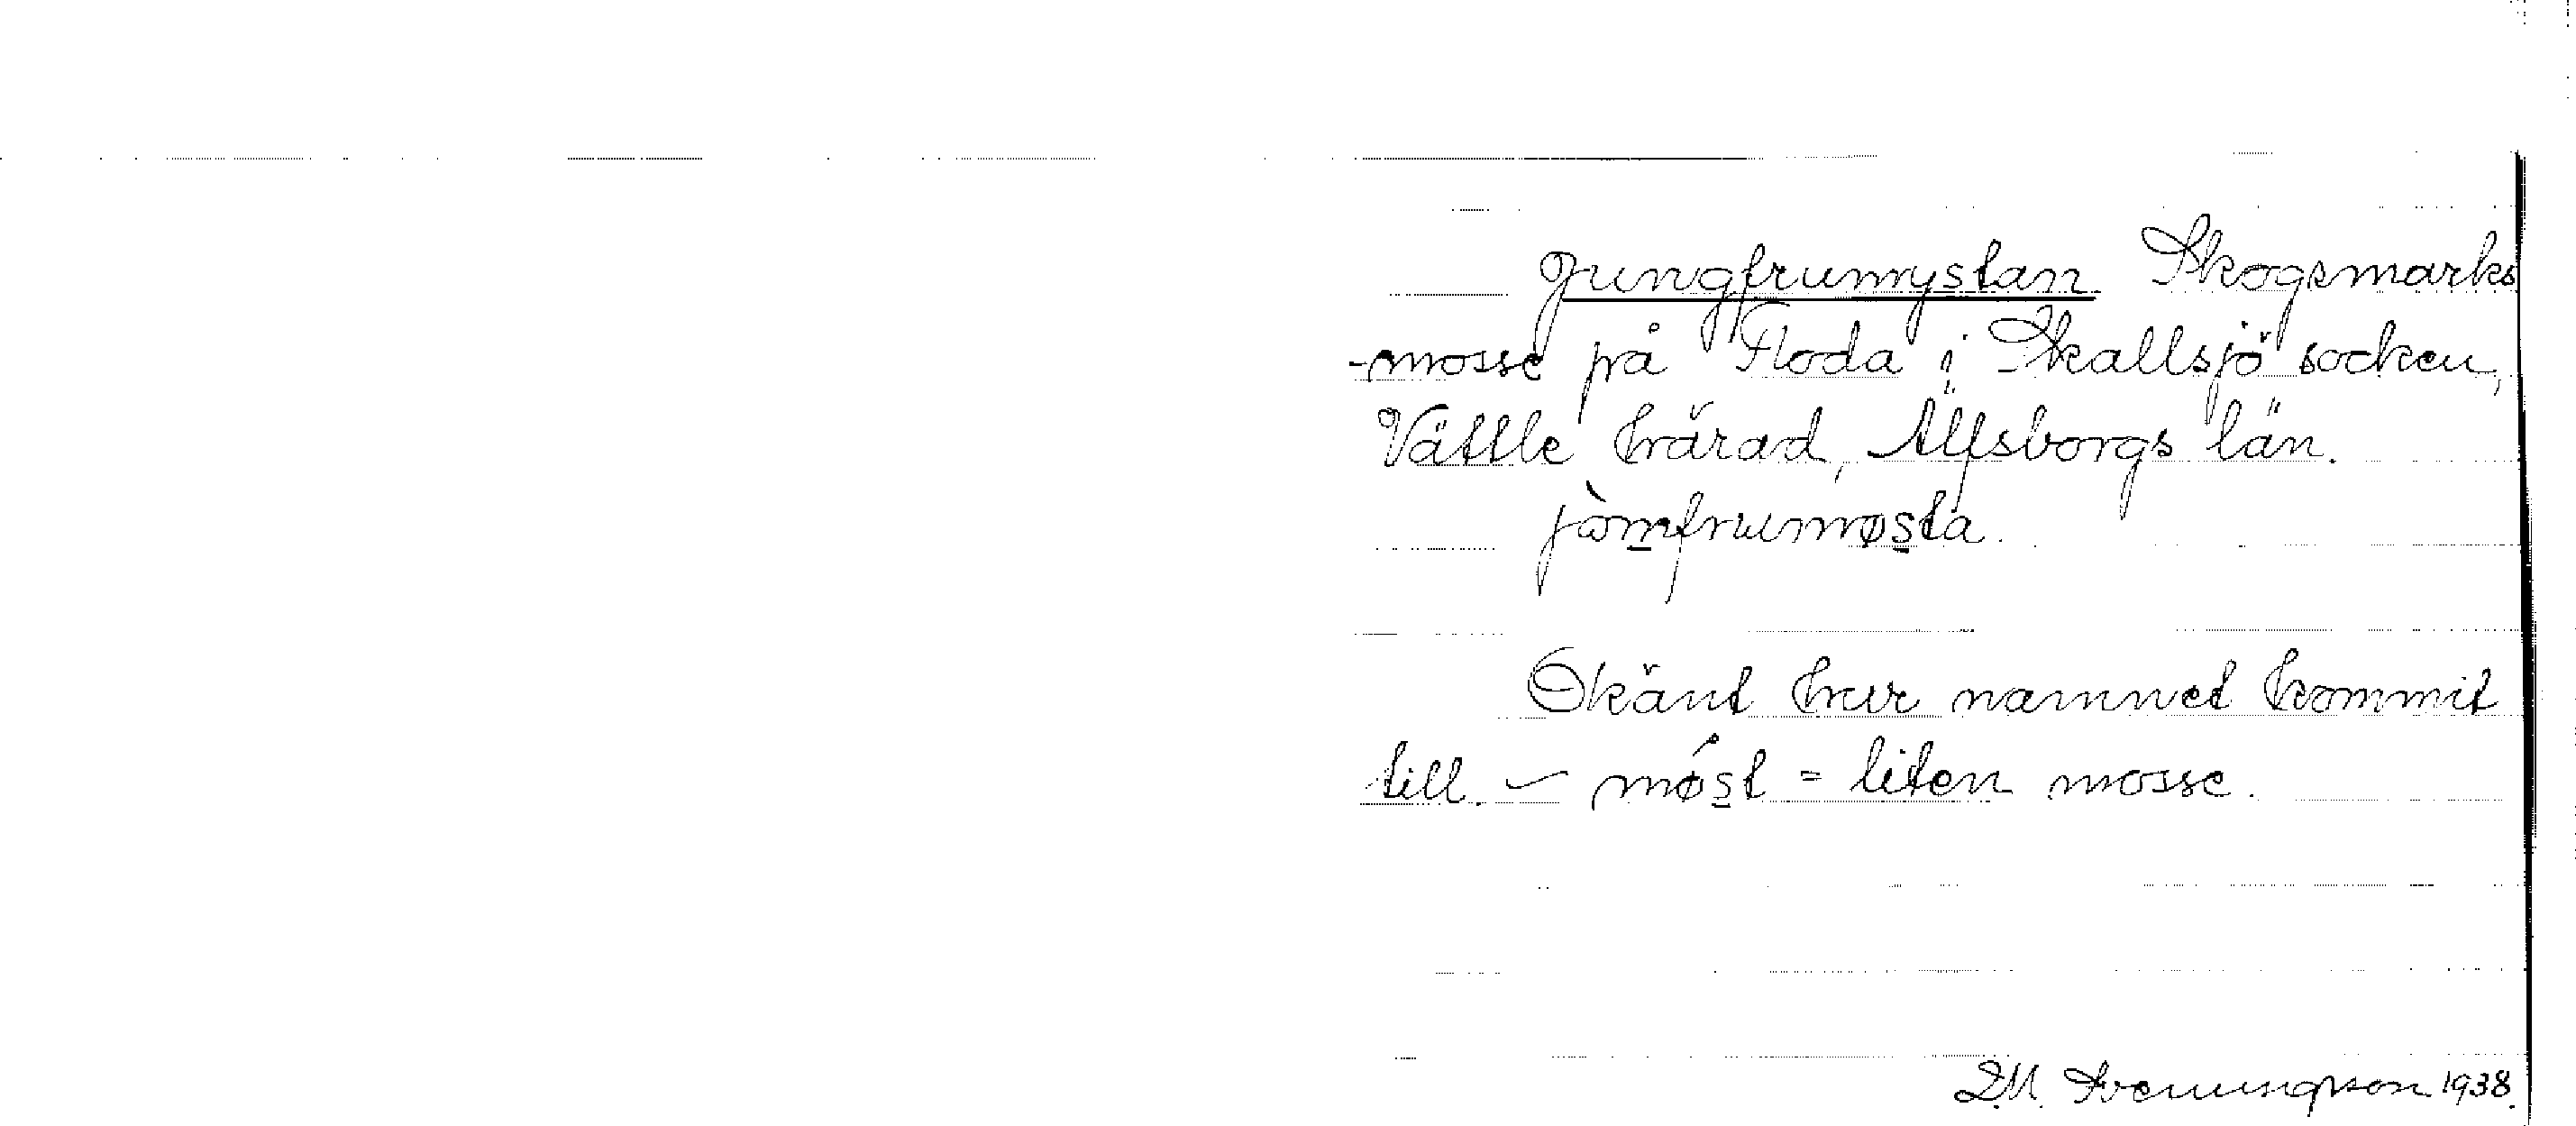 Jungfrumystan Skogsmarks
-mosse på Floda i Skallsjö socken,
Vättle härad, Älfsborgs län.
jòmfrumøsta.
Okänt hur namnet kommit
till. – møst = liten mosse.
D.M. Svenungsson 1938.